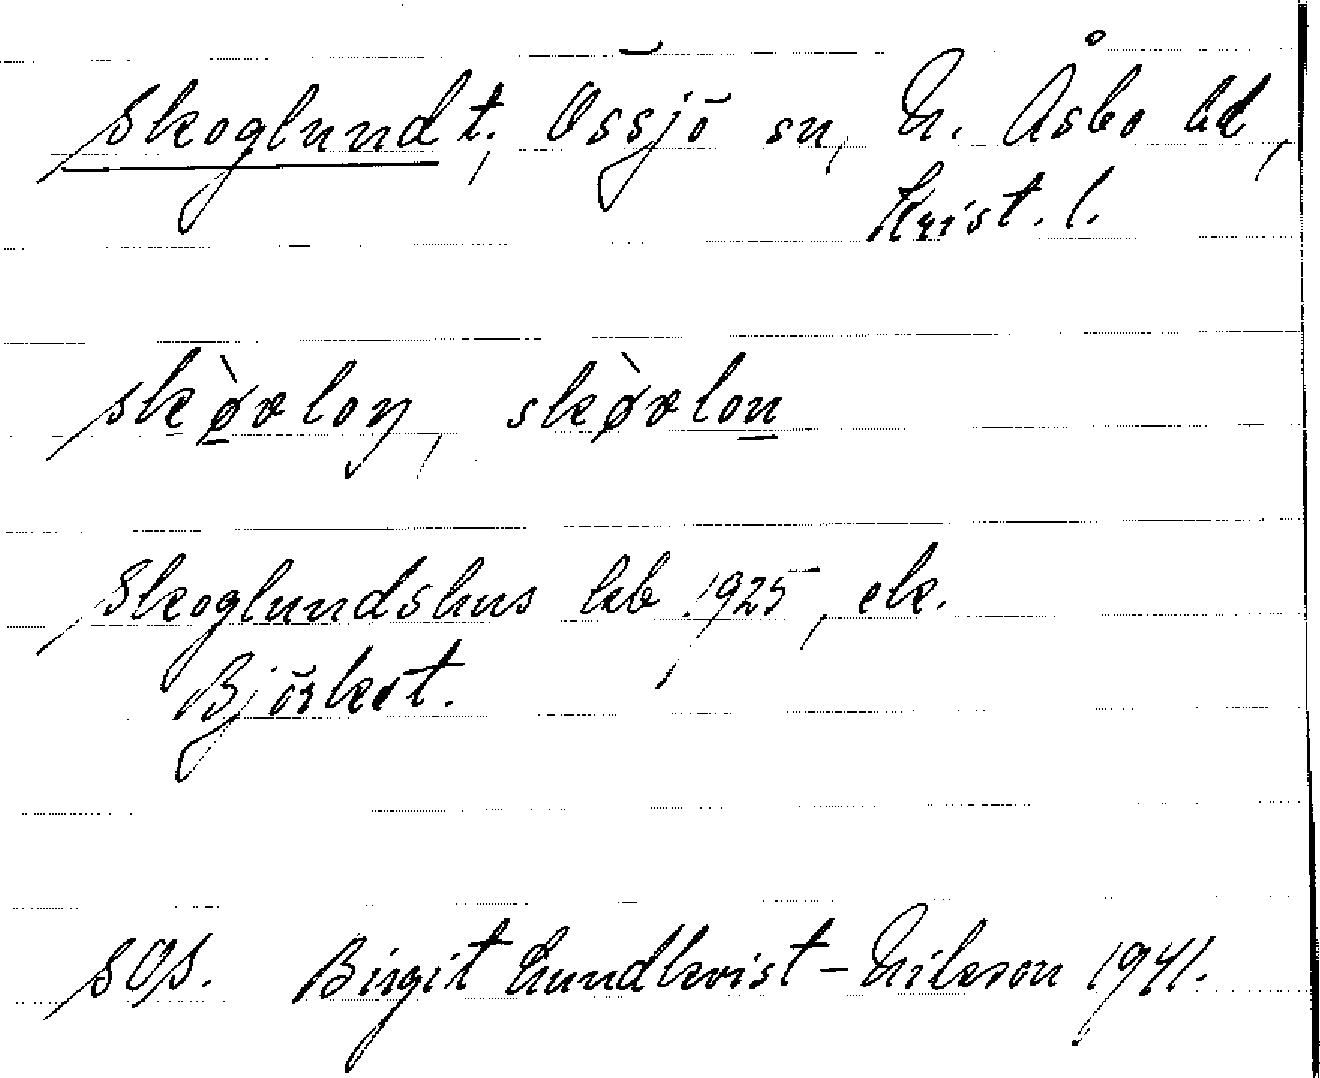 Skoglund t., Össjö sn, N. Åsbo hd,
Krist. l.
skòvloŋ, skøvlon
Skoglundshus kb 1925, ek.
Björket.
SOS. Birgit Lundkvist-Nilsson 1941.